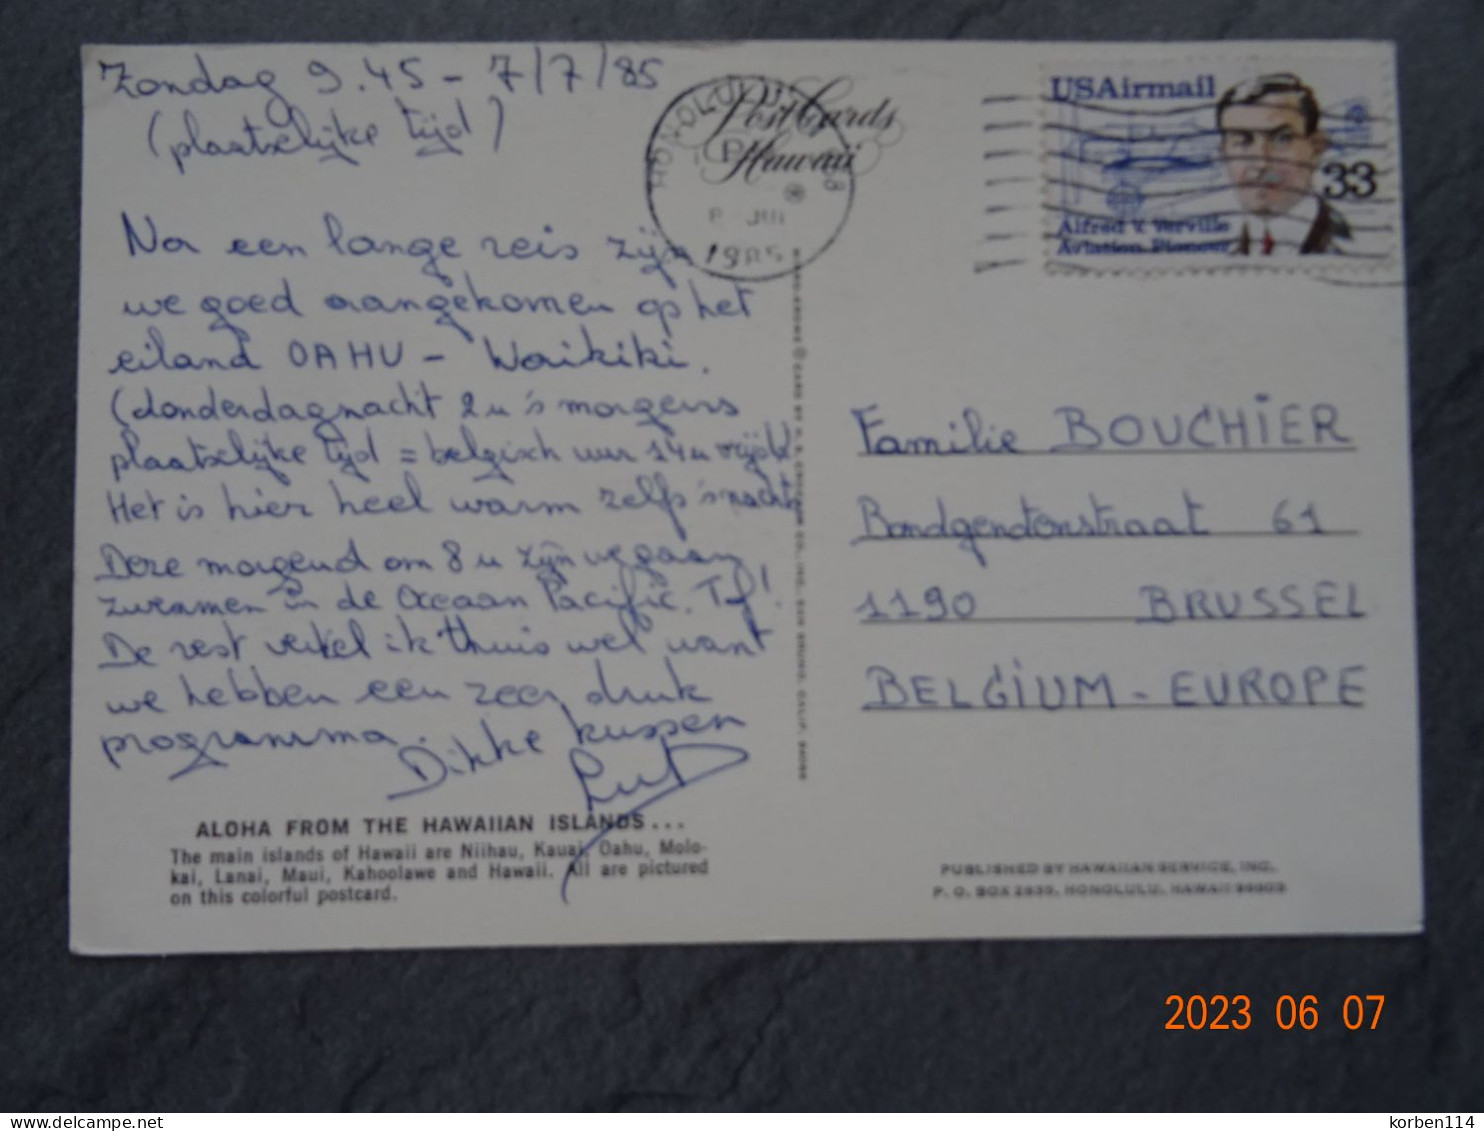 Zondag 9.45 - 7/7/85
(plaatselijke tijd)
Na een lange reis zijn
we goed aangekomen op het
eiland OAHU - Waikiki.
(donderdagnacht 2u 's morgens
plaatselijke tijd = belgisch uur 14u vrijd)
Het is hier heel warm zelfs 's nachts
Deze morgend om 8 u zijn we gaan
zwemmen in de Oceaan Pacific. Tof!
De rest vertel ik thuis wel want
we hebben een zeer druk
programma.
Dikke kussen
ALOHA FROM THE HAWAIIAN ISLANDS...
The main islands of Hawaii are Niihau, Kauai, Oahu, Molo-
kai, Lanai, Maui, Kahoolawe and Hawaii. All are pictured
on this colorful postcard.
HONOLULU
PM
8 JUL
1985
Post Cards
Hawaii
USAirmail
33
Alfred V. Verville
Aviation Pioneer
Familie BOUCHIER
Bondgenotenstraat 61
1190 BRUSSEL
BELGIUM - EUROPE
PUBLISHED BY HAWAIIAN SERVICE, INC.
P. O. BOX 2835, HONOLULU, HAWAII 96803
2023 06 07
www.delcampe.net
korben114